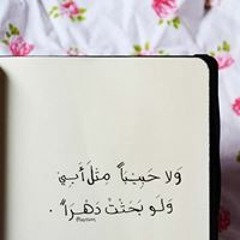 وَلا حَبِيْبَاً مِثْلَ أَبِيْ
وَلَو بَحَثْتُ دَهْرَاً .